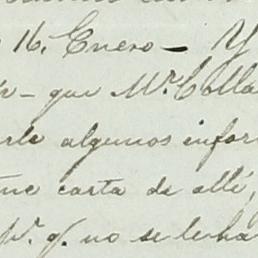 16. Enero — Y
— que Mr. Colla
algunos infor
carta de allé,
pr. q. no se le ha